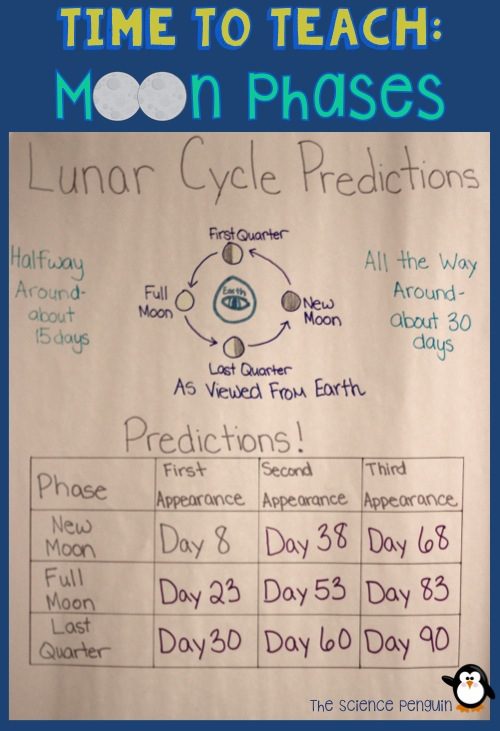 TIME TO TEACH:
MOON PHASES
Lunar Cycle Predictions
First Quarter
Halfway
Around-
about
15 days
Full
Moon
Earth
New
Moon
All the Way
Around-
about 30
days
Last Quarter
As Viewed From Earth
Predictions!
Phase
First
Appearance
Second
Appearance
Third
Appearance
New
Moon
Day 8
Day 38
Day 68
Full
Moon
Day 23
Day 53
Day 83
Last
Quarter
Day 30
Day 60
Day 90
The Science Penguin